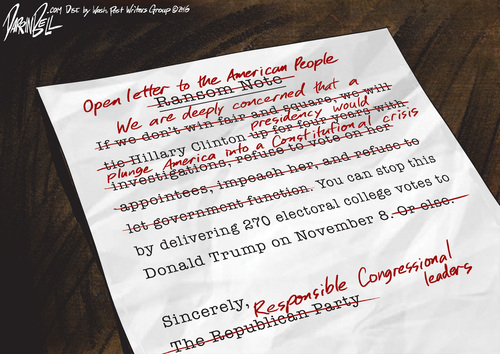 DARRINBELL.COM DIST by Wash. Post Writers Group ©2016
Open letter to the American People
Ransom Note
We are deeply concerned that a
If we don't win fair and square, we will
presidency would
tie Hillary Clinton up for four years with
plunge America into a Constitutional crisis
investigations, refuse to vote on her
appointees, impeach her, and refuse to
let government function. You can stop this
by delivering 270 electoral college votes to
Donald Trump on November 8. Or else.
Responsible Congressional
leaders
Sincerely,
The Republican Party